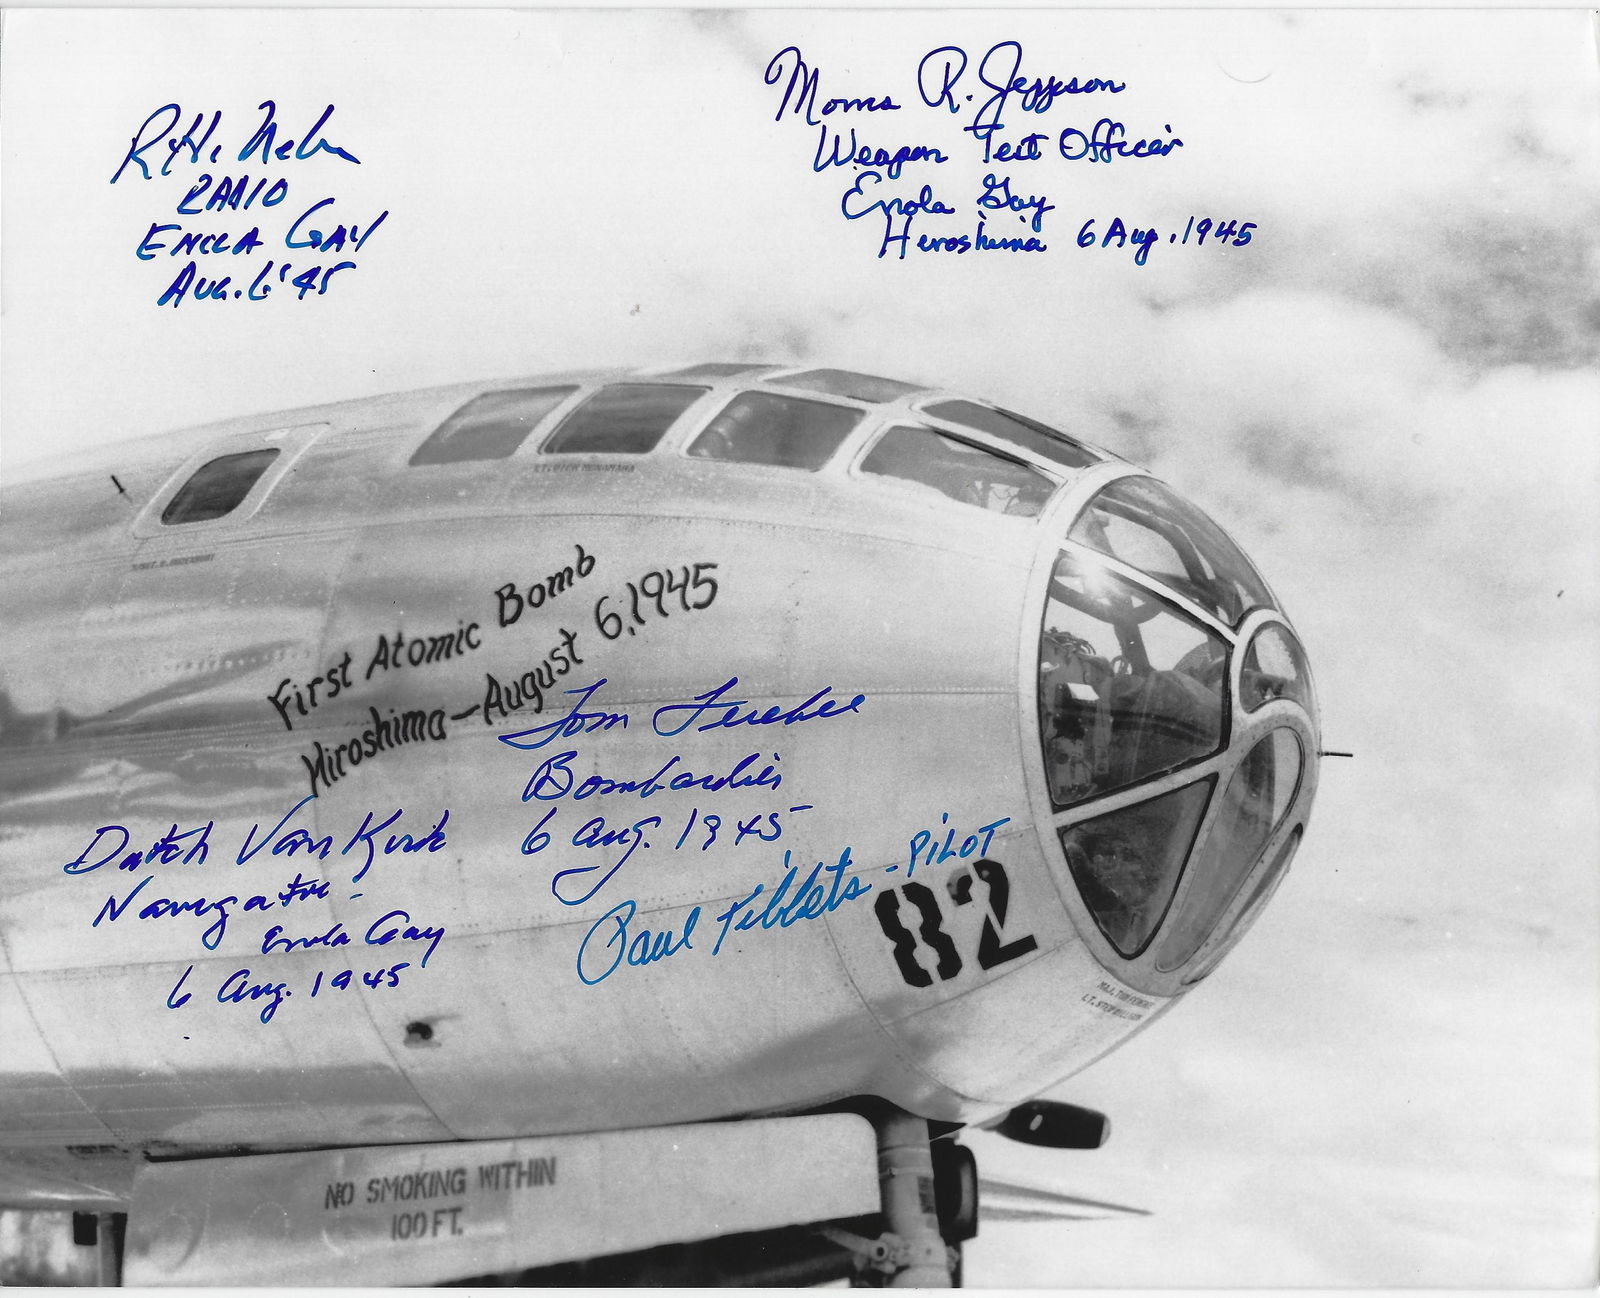 R.H. Nelson
RADIO
ENOLA GAY
AUG. 6 '45
Morris R. Jeppson
Weapon Test Officer
Enola Gay
Hiroshima 6 Aug. 1945
LT. DICK MCNAMARA
First Atomic Bomb
Hiroshima—August 6, 1945
Tom Ferebee
Bombardier
6 Aug. 1945
Dutch Van Kirk
Navigator
Enola Gay
6 Aug. 1945
Paul Tibbets - PILOT
82
MAJ. TOM FEREBEE
NO SMOKING WITHIN
100 FT.